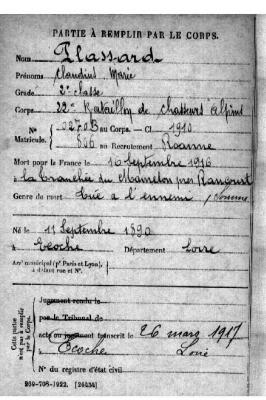 PARTIE À REMPLIR PAR LE CORPS.
Nom Plassard
Prénoms Claudius Marie
Grade 2e classe
Corps 22me Bataillon de chasseurs Alpins
N° 02703 au Corps. — Cl 1910
Matricule. 806 au Recrutement Roanne
Mort pour la France le 16 Septembre 1916
à la tranchée du Mamelon près Rancourt
Genre de mort tué à l'ennemi Somme
Né le 11 Septembre 1890
à Ecoche Département Loire
Arrt municipal (pr Paris et Lyon),
à défaut rue et N°.
Cette partie
n'est pas à remplir
par le Corps.
Jugement rendu le
par le Tribunal de
acte ou jugement transcrit le 26 mars 1917
à Ecoche Loire
N° du registre d'état civil
269-708-1922. [26434]